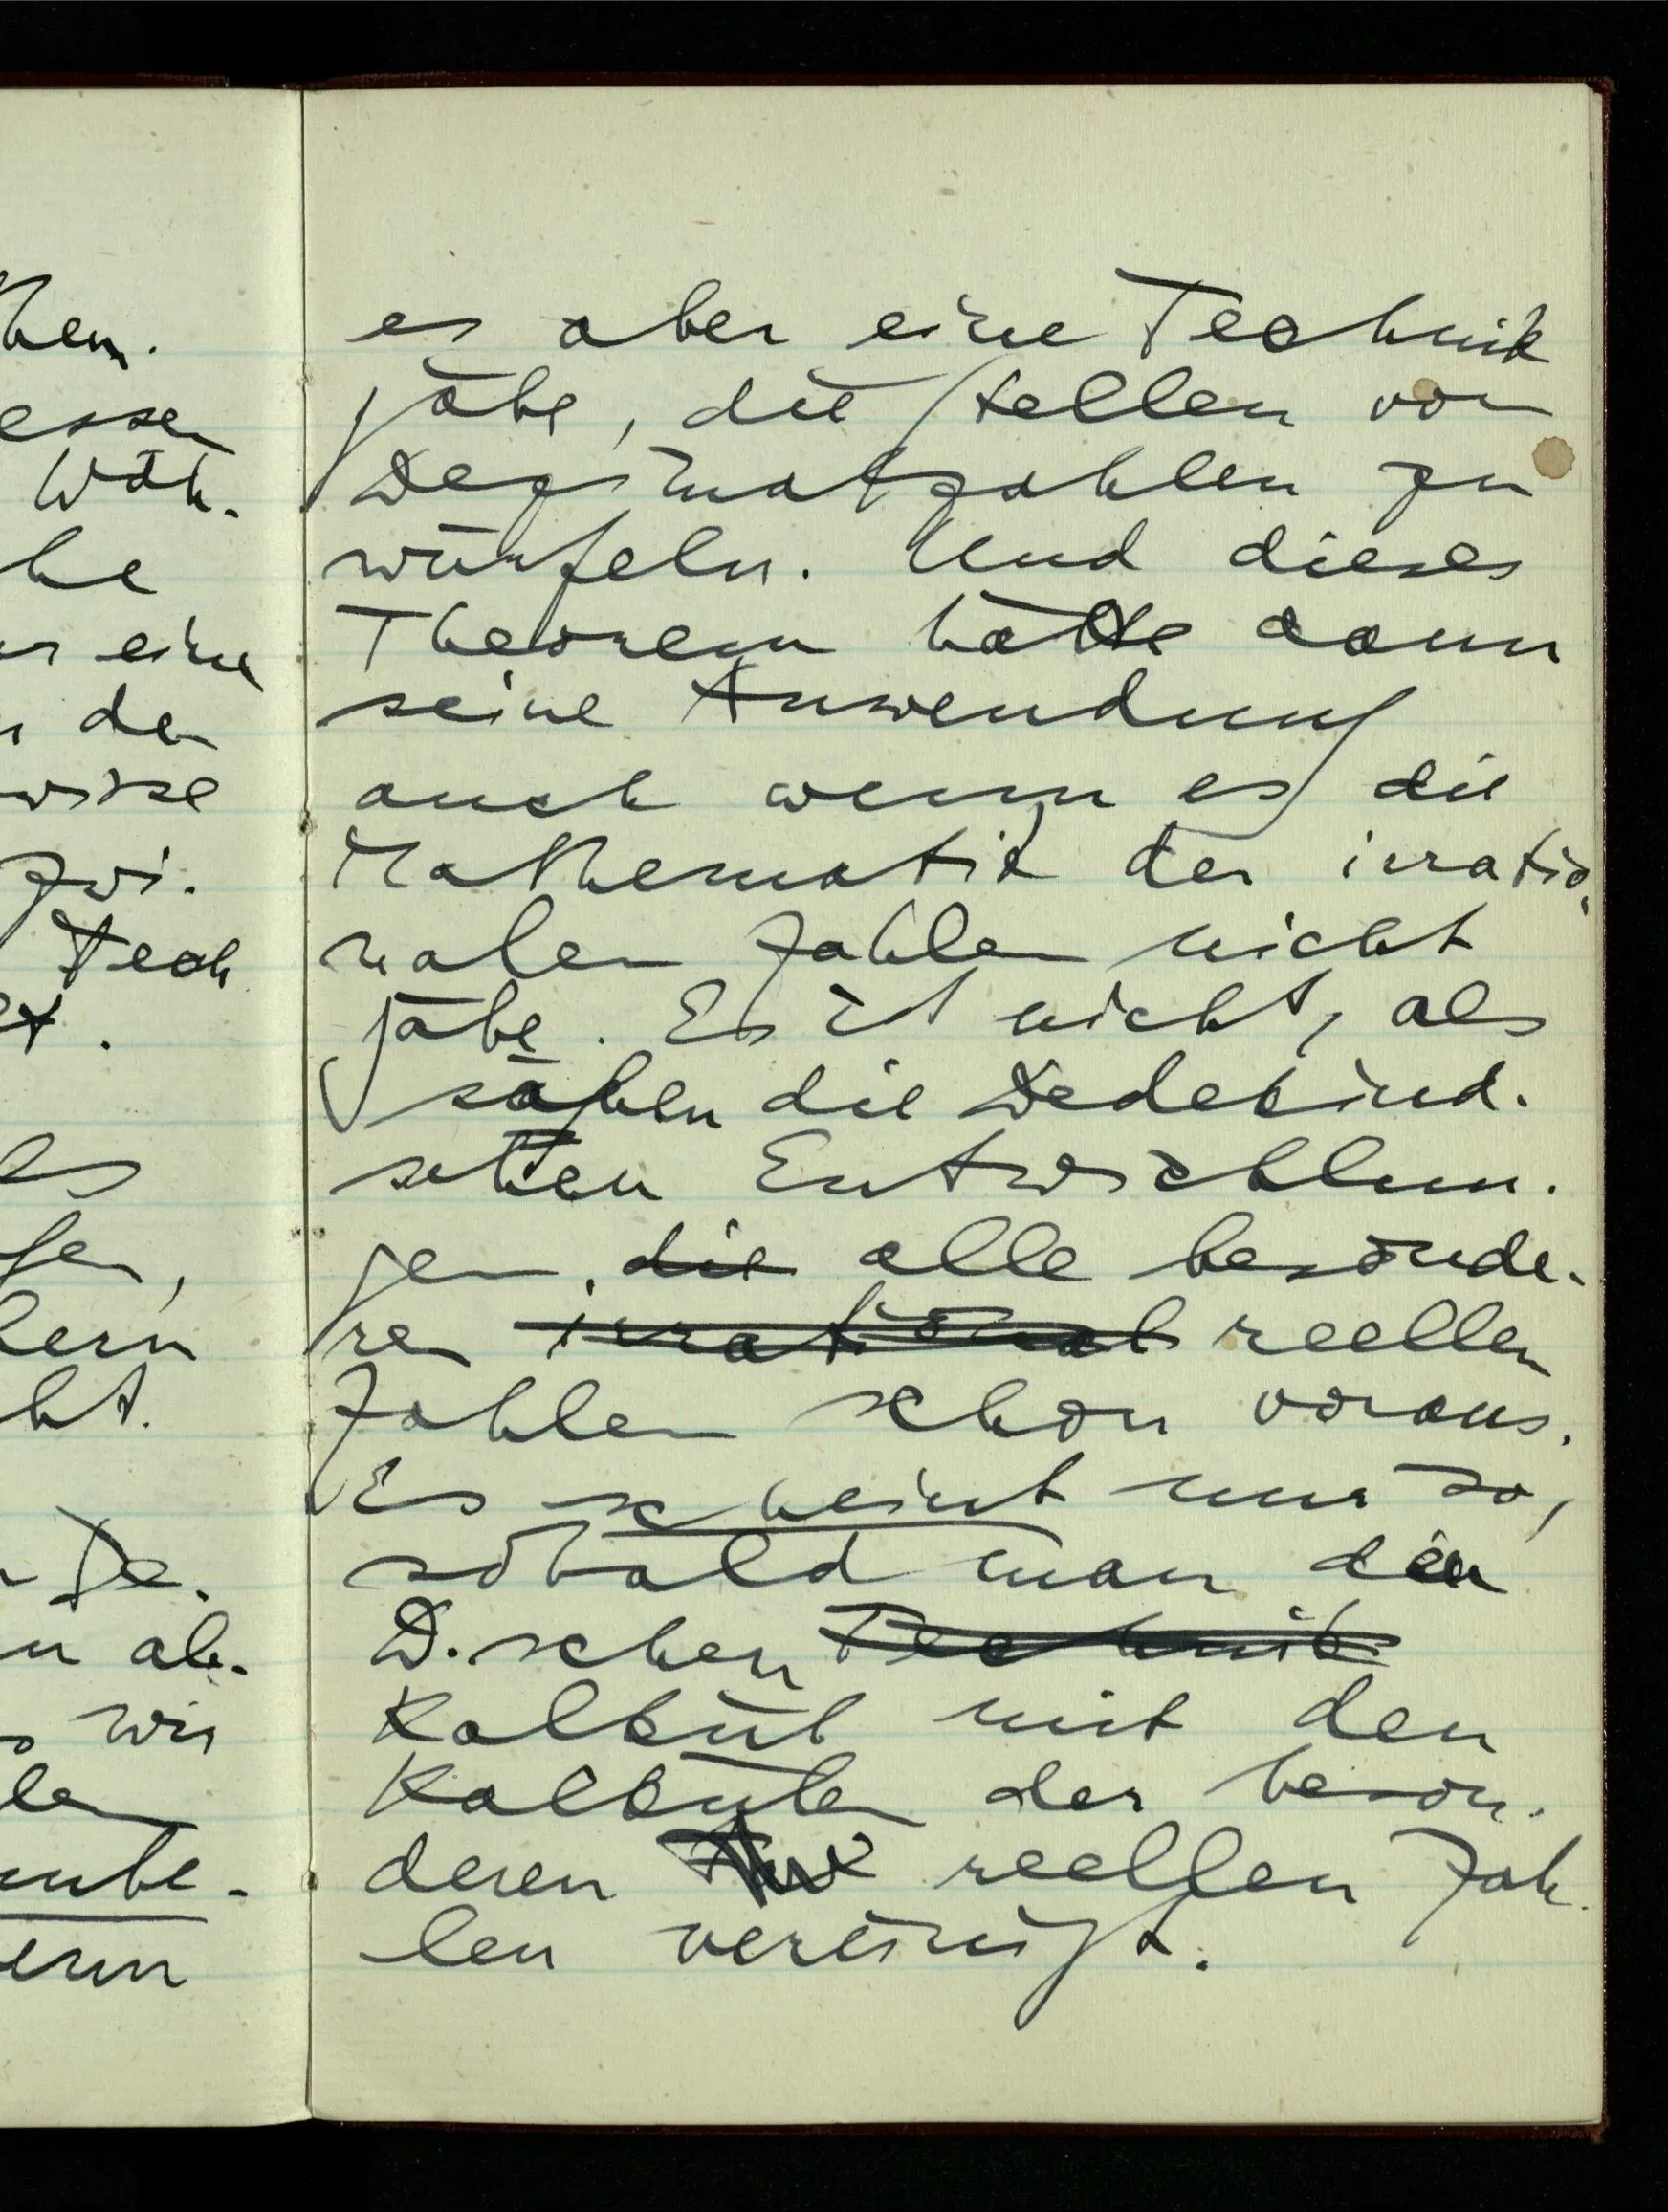 them.
essen
Wäh-
he
r eine
n den
wisse
zwi-
Tech
et.
es
fen,
dern
ht.
De-
n ab-
s wir
len
unbe-
enn
es aber eine Technik
gäbe, die Stellen von
Dezimalzahlen zu
würfeln. Und dieses
Theorem hätte dann
seine Anwendung
auch wenn es die
Mathematik der irratio-
nalen Zahlen nicht
gäbe. Es ist nicht, als
sähen die Dedekind-
schen Entwicklun-
gen, die alle besonde-
ren irrational reellen
Zahlen schon voraus.
Es scheint nur so,
sobald man den
D.schen Technik
Kalkül mit den
Kalkülen der beson-
deren reellen Zah-
len vereinigt.